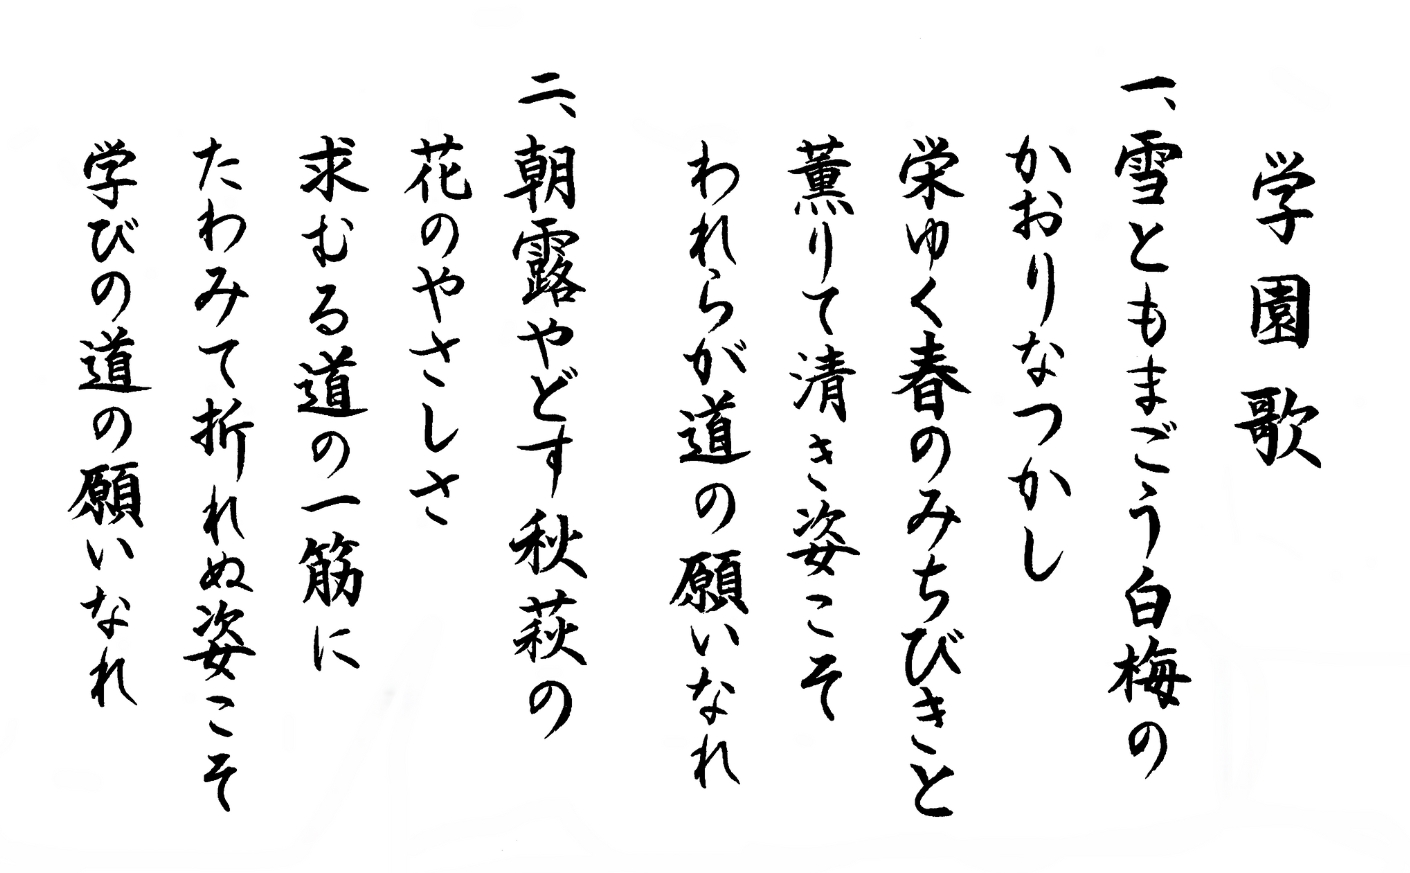 学園歌
一、雪ともまごう白梅の
かおりなつかし
栄ゆく春のみちびきと
薫りて清き姿こそ
われらが道の願いなれ
二、朝露やどす秋萩の
花のやさしさ
求むる道の一筋に
たわみて折れぬ姿こそ
学びの道の願いなれ